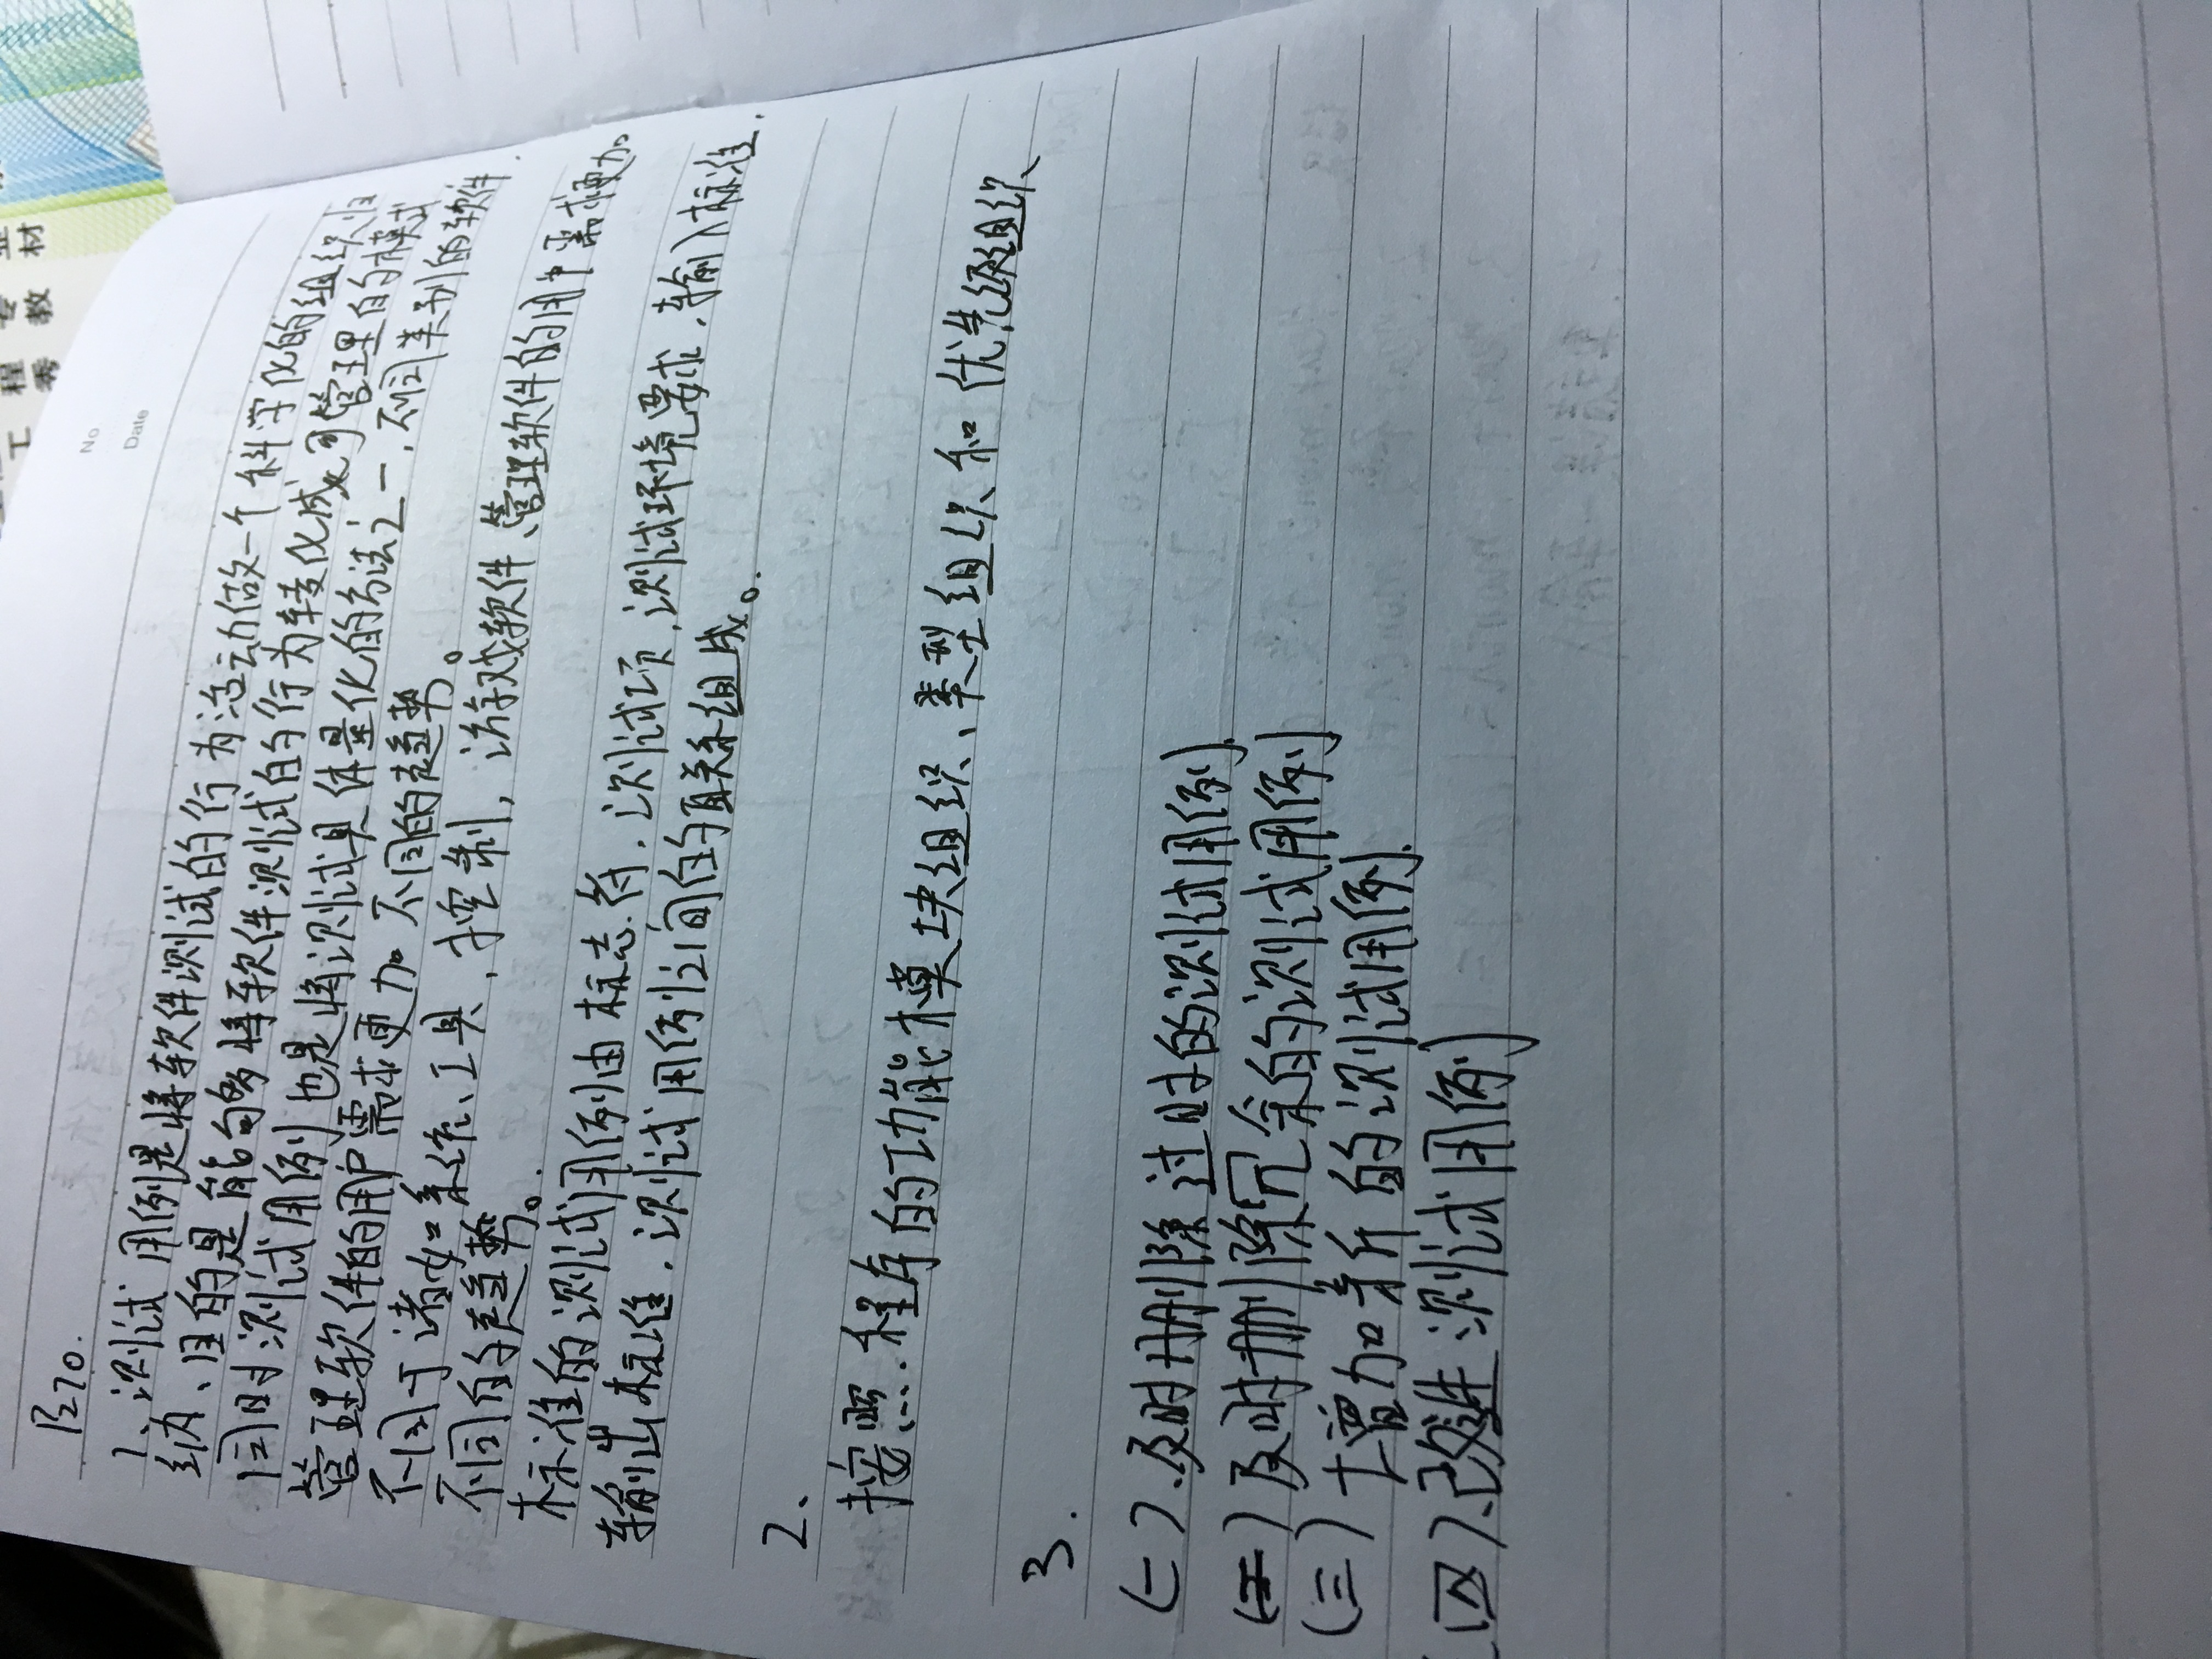 工 程 专 业
秀 教 材
No
Date
P270.
1、测试用例是将软件测试的行为活动做一个科学化的组织归
纳、目的是能够将软件测试的行为转变化成可管理的模式
同时测试用例也是将测试具体量化的方法之一,不同类别的软件.
管理软件的用户需求更加不同的趋势。
不同于诸如系统、工具,控制,游戏软件、管理软件的用户需求更加
不同的趋势。
标准的测试用例由标志.符.测试项,测试环境要求,输入标准.
输出标准.测试用例之间的联系组成。
2、
按照.程序的功能模块组织、类型组织和优先级组织
3.
(一)、及时删除过时的测试用例.
(二)及时删除冗余的测试用例
(三)增加新的测试用例.
(四)、改进测试用例